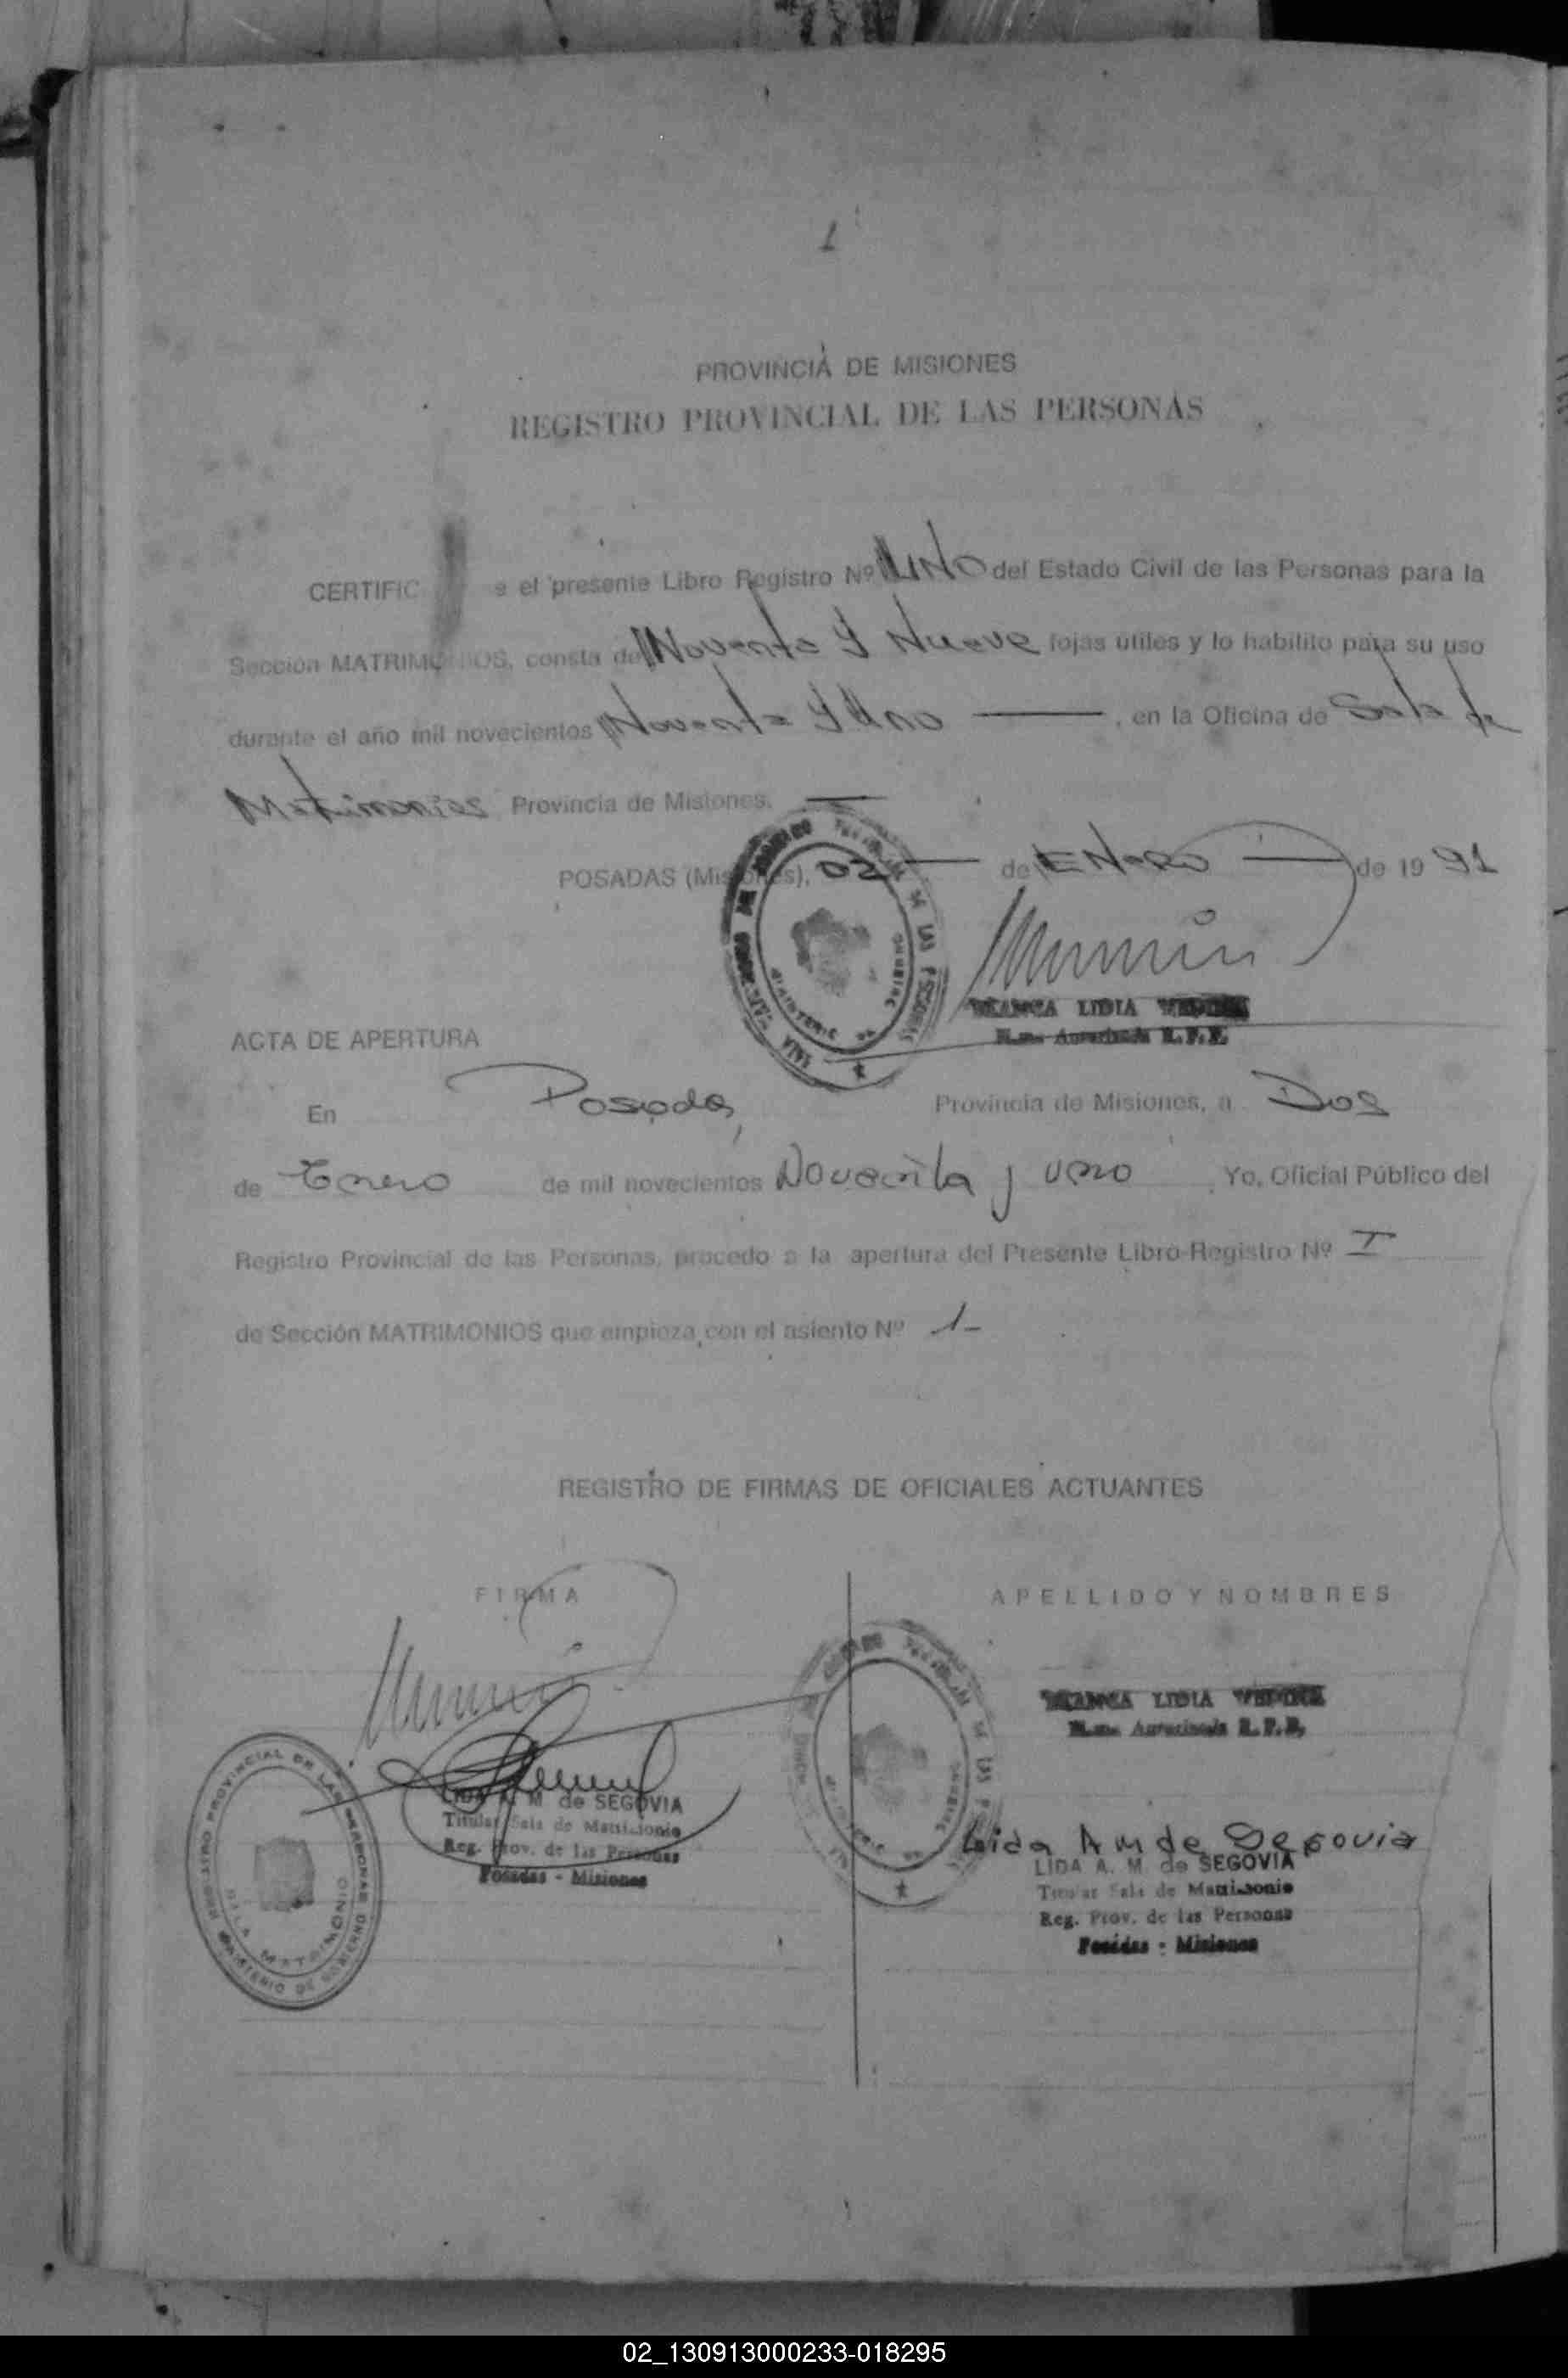 1
PROVINCIA DE MISIONES
REGISTRO PROVINCIAL DE LAS PERSONAS
CERTIFIC e el presente Libro Registro Nº UNO del Estado Civil de las Personas para la
Sección MATRIMONIOS, consta de Noventa Y Nueve fojas útiles y lo habilito para su uso
durante el año mil novecientos Noventa Y Uno —, en la Oficina de Sala de
Matrimonios Provincia de Misiones. —
POSADAS (Misiones), 02 — de ENERO — de 19 91
LIDIA
R. P. P.
ACTA DE APERTURA
En Posadas, Provincia de Misiones, a Dos
de Enero de mil novecientos Noventa y uno Yo, Oficial Público del
Registro Provincial de las Personas, procedo a la apertura del Presente Libro-Registro Nº I
de Sección MATRIMONIOS que empieza con el asiento Nº 1-
REGISTRO DE FIRMAS DE OFICIALES ACTUANTES
FIRMA APELLIDO Y NOMBRES
LIDIA
R. P. P.
LIDA A. M de SEGOVIA
Titular Sala de Matrimonio
Reg. Prov. de las Personas
Posadas - Misiones
Lida A M de Segovia
LIDA A. M. de SEGOVIA
Titular Sala de Matrimonio
Reg. Prov. de las Personas
Posadas - Misiones
REGISTRO PROVINCIAL DE LAS PERSONAS
MINISTERIO DE GOBIERNO
SALA MATRIMONIO
02_130913000233-018295